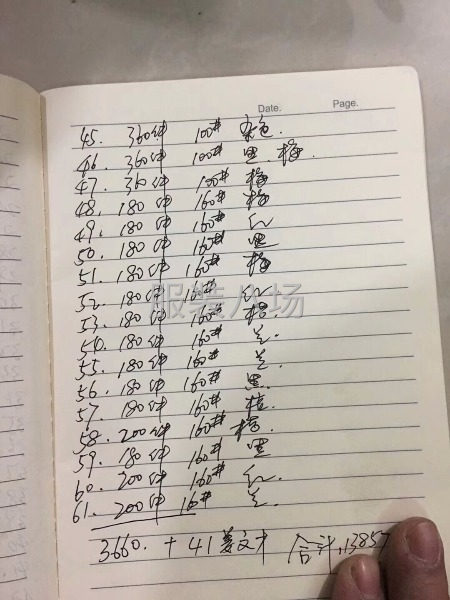 Date. Page.
45. 360个 100# 杂色.
46. 360个 100# 黑 梅.
47. 360个 100# 梅
48. 180个 160# 梅
49. 180个 160# 红
50. 180个 160# 黑
51. 180个 160# 梅
52. 180个 160# 红
53. 180个 160# 梅
54. 180个 160# 兰.
55. 180个 160# 兰.
56. 180个 160# 黑.
57. 180个 160# 桔
58. 200个 160# 梅.
59. 180个 160# 黑
60. 200个 160# 红.
61. 200个 160# 兰.
3660. + 41 合计:13857
服装八场